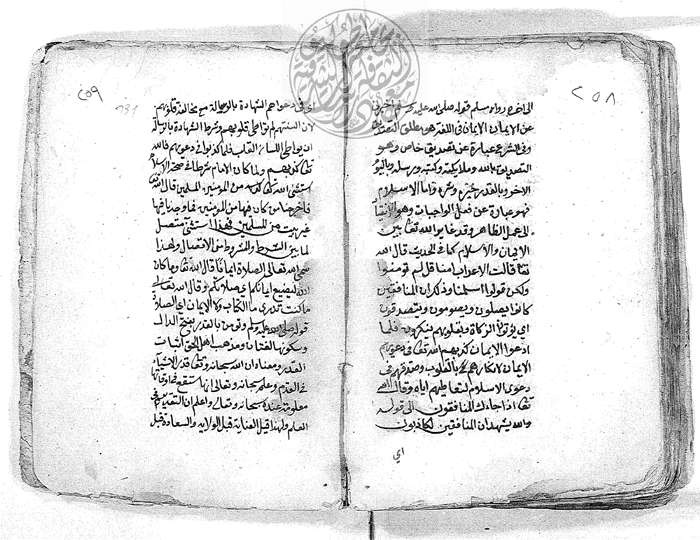 ٢٥٨
الى اخره رواه مسلم قوله صلى الله عليه وسلم اخبرني
عن الايمان الايمان في اللغة هو مطلق التصديق
وفي الشرع عبارة عن تصديق خاص وهو
التصديق بالله وملايكته وكتبه ورسله وباليوم
الاخر وبالقدر خيره وشره واما الاسلام
فهو عبارة عن فعل الواجبات وهو الانقياد
الى عمل الظاهر وقد غاير الله تعالى بين
الايمان والاسلام كما في الحديث قال الله
تعالى قالت الاعراب امنا قل لم تومنوا
ولكن قولوا اسلمنا وذكر ان المنافقين
كانوا يصلون ويصومون ويتصدقون
اي يؤتون الزكاة وبقلوبهم ينكرون فلما
ادعوا الايمان كذبهم الله تعالى في دعويهم
الايمان لانكارهم بالقلوب وصدقهم في
دعوى الاسلام لتعاطيهم اياه وقال الله
تعالى اذا جاءك المنافقون الى قوله
والله يشهد ان المنافقين لكاذبون
اي
٢٥٩
اي في دعواهم الشهادة بالرسالة مع مخالفة قلوبهم
لان السنتهم لم تواطي قلوبهم وشرط الشهادة بالرسالة
ان يواطي اللسان القلب فلما كذبوا في دعويهم فالله
تعالى كذبهم ولما كان الايمان شرطا في صحة الاسلام
استثنى الله تعالى من المومنين المسلمين قال الله تعالى
فاخرجنا من كان فيها من المومنين فما وجدنا فيها
غير بيت من المسلمين فهذا استثنى متصل
لما بين الشرط والمشروط من الاتصال ولهذا
سمى الله تعالى الصلاة ايمانا قال الله تعالى وما كان
الله ليضيع ايمانكم اي صلاتكم وقال الله تعالى
ما كنت تدري ما الكتاب ولا الايمان اي الصلاة
قوله صلى الله عليه وسلم وتومن بالقدر بفتح الدال
وسكونها لغتان ومذهب اهل الحق اثبات
القدر ومعناه ان الله سبحانه وتعالى قدر الاشياء
في القدم وعلم سبحانه وتعالى انها ستقع في اوقات
معلومة عنده سبحانه وتعالى واعلم ان التقدير في
العلم ولهذا قيل العناية قبل الولاية والسعادة قبل